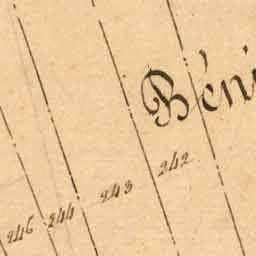 Béni
246 244 243 242